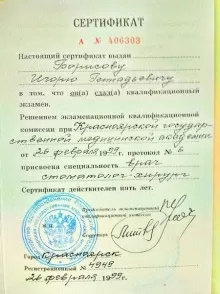 СЕРТИФИКАТ
А № 406303
Настоящий сертификат выдан
Борисову
Игорю Геннадьевичу
в том, что он(а) сдал(а) квалификационный
экзамен.
Решением экзаменационной квалификационной
комиссии при Красноярской государ-
ственной медицинской академии
от 26 февраля 1999 г. протокол № 6
присвоена специальность врач
стоматолог-хирург
Сертификат действителен пять лет.
Председатель экзаменационной
квалификационной комиссии
М.П.
Секретарь
Город Красноярск
Регистрационный № 4949
26 февраля 1999 г.